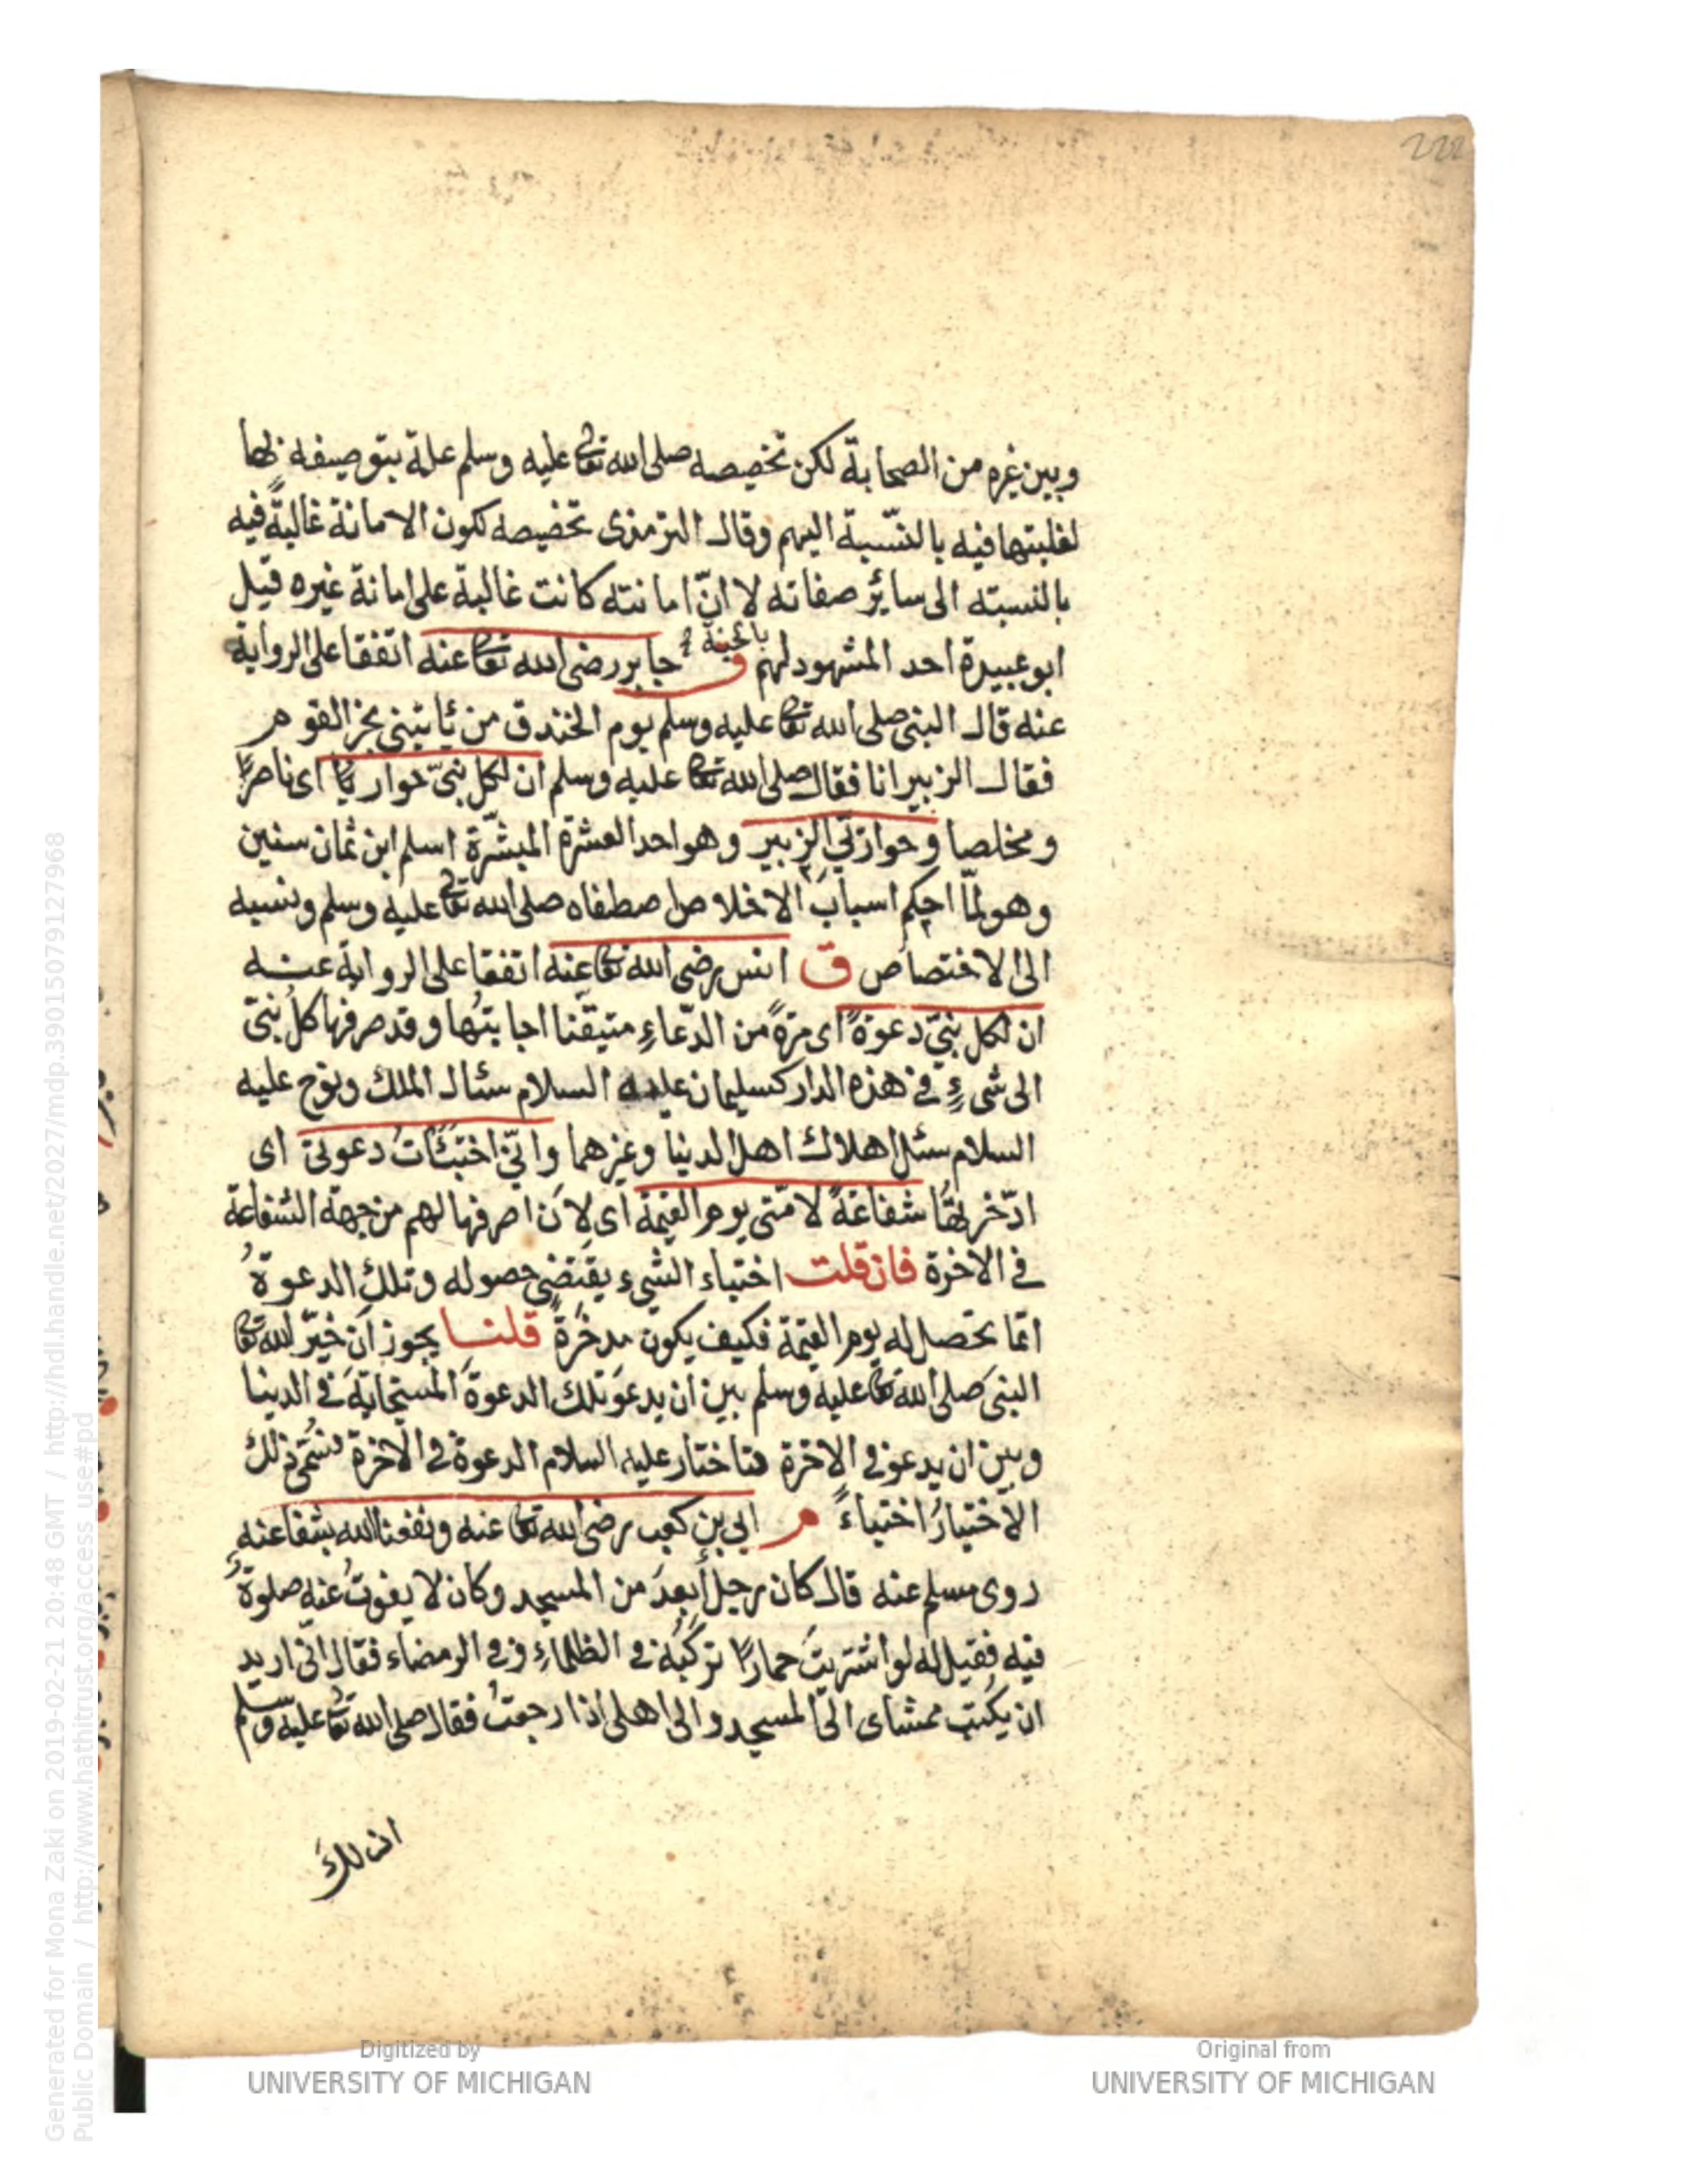 222
وبين غيره من الصحابة لكن تخصيصه صلى الله تعا عليه وسلم علة بتوصيفه بها
لغلبتها فيه بالنّسبة اليهم وقال الترمذى تخصيصه لكون الامانة غالبةً فيه
بالنسبته الى سائر صفاته لا انّ امانته كانت غالبة على امانة غيره قيل
ابو عبيدة احد المشهود لهم بالجنة ق جابر رضى الله تعا عنه اتفقا على الرواية
عنه قال النبى صلى الله تعا عليه وسلم يوم الخندق من يأتينى بخبر القوم
فقال الزبير انا فقال صلى الله تعا عليه وسلم ان لكل نبىّ حواريًّا اى ناصرًا
ومخلصا وحوارىّ الزبير وهو احد العشرة المبشّرة اسلم ابن ثمان سنين
وهو لمّا احكم اسباب الاخلاص اصطفاه صلى الله تعا عليه وسلم ونسبه
الى الاختصاص ق انس رضى الله تعا عنه اتفقا على الرواية عنه
ان لكل نبىّ دعوةً اى مرّةً من الدّعاءِ متيقّنا اجابتُها وقد صرفها كلُ نبىّ
الى شىءٍ فى هذه الدار كسليمان عليه السلام سئال الملك ونوح عليه
السلام سئل اهلاك اهل الدنيا وغيرهما وانّى اختبئاتُ دعوتى اى
ادّخر بها شفاعةً لامّتى يوم القيمة اى لان اصرفها لهم من جهة الشفاعة
فى الاخرة فان قلت اختباء الشىء يقتضى حصوله وتلك الدعوةُ
انما تحصل له يوم القيمة فكيف يكون مدخرةً قلنا يجوز ان خيّر الله تعا
النبى صلى الله تعا عليه وسلم بين ان يدعوَ تلك الدعوةَ المستجابةَ فى الدنيا
وبين ان يدعو فى الاخرة فتاختار عليه السلام الدعوة فى الاخرة فسُمّى ذلك
الاختيارُ اختباءً م ابى بن كعب رضى الله تعا عنه ونفعنا الله بشفاعته
روى مسلم عنه قال كان رجل أبعدَ من المسجد وكان لا يفوتُ عنه صلوةٌ
فيه فقيل له لو اشتريتَ حمارًا تركبُه فى الظلماءِ وفى الرمضاء فقال انّى اريد
ان يكتب ممشاى الى المسجد والى اهلى اذا رجعتُ فقال صلى الله تعا عليه وسلم
ان لك
Generated for Mona Zaki on 2019-02-21 20:48 GMT / http://hdl.handle.net/2027/mdp.39015079127968
Public Domain / http://www.hathitrust.org/access_use#pd
Digitized by
UNIVERSITY OF MICHIGAN
Original from
UNIVERSITY OF MICHIGAN